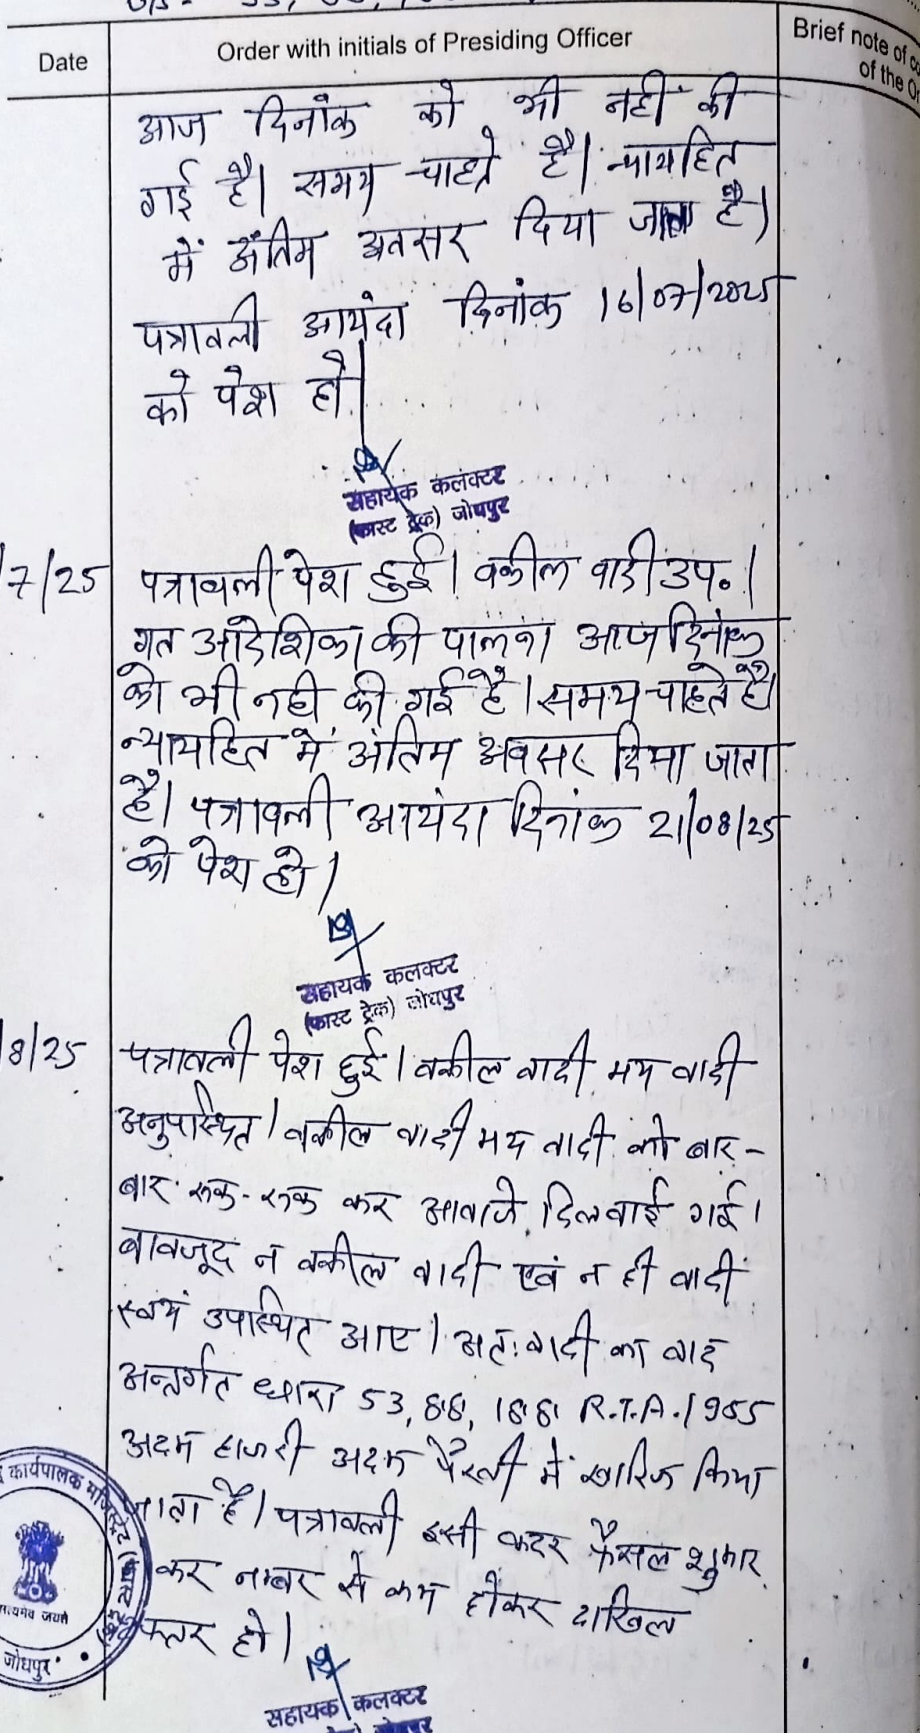 Date
Order with initials of Presiding Officer
Brief note of
of the
आज दिनांक को भी नहीं की
गई है। समय चाहते है। न्यायहित
में अंतिम अवसर दिया जाता है।
पत्रावली आयंदा दिनांक 16/07/2025
को पेश हो।
सहायक कलक्टर
(फास्ट ट्रेक) जोधपुर
7/25
पत्रावली पेश हुई। वकील वादी उप०।
गत आदेशिका की पालना आज दिनांक
को भी नही की गई है। समय चाहते है।
न्यायहित में अंतिम अवसर दिया जाता
है। पत्रावली आयंदा दिनांक 21/08/25
को पेश हो।
सहायक कलक्टर
(फास्ट ट्रेक) जोधपुर
8/25
पत्रावली पेश हुई। वकील वादी मय वादी
अनुपस्थित। वकील वादी मय वादी को बार-
बार रूक-रूक कर आवाजे दिलवाई गई।
बावजूद न वकील वादी एवं न ही वादी
स्वयं उपस्थित आए। अतः वादी का वाद
अन्तर्गत धारा 53, 88, 188 R.T.A. 1955
अदम हाजरी अदम पैरवी में खारिज किया
जाता है। पत्रावली इसी कदर फैसल शुमार
कर नम्बर से कम होकर दाखिल
दफ्तर हो।
कार्यपालक मजिस्ट्रेट
सत्यमेव जयते
जोधपुर
सहायक कलक्टर